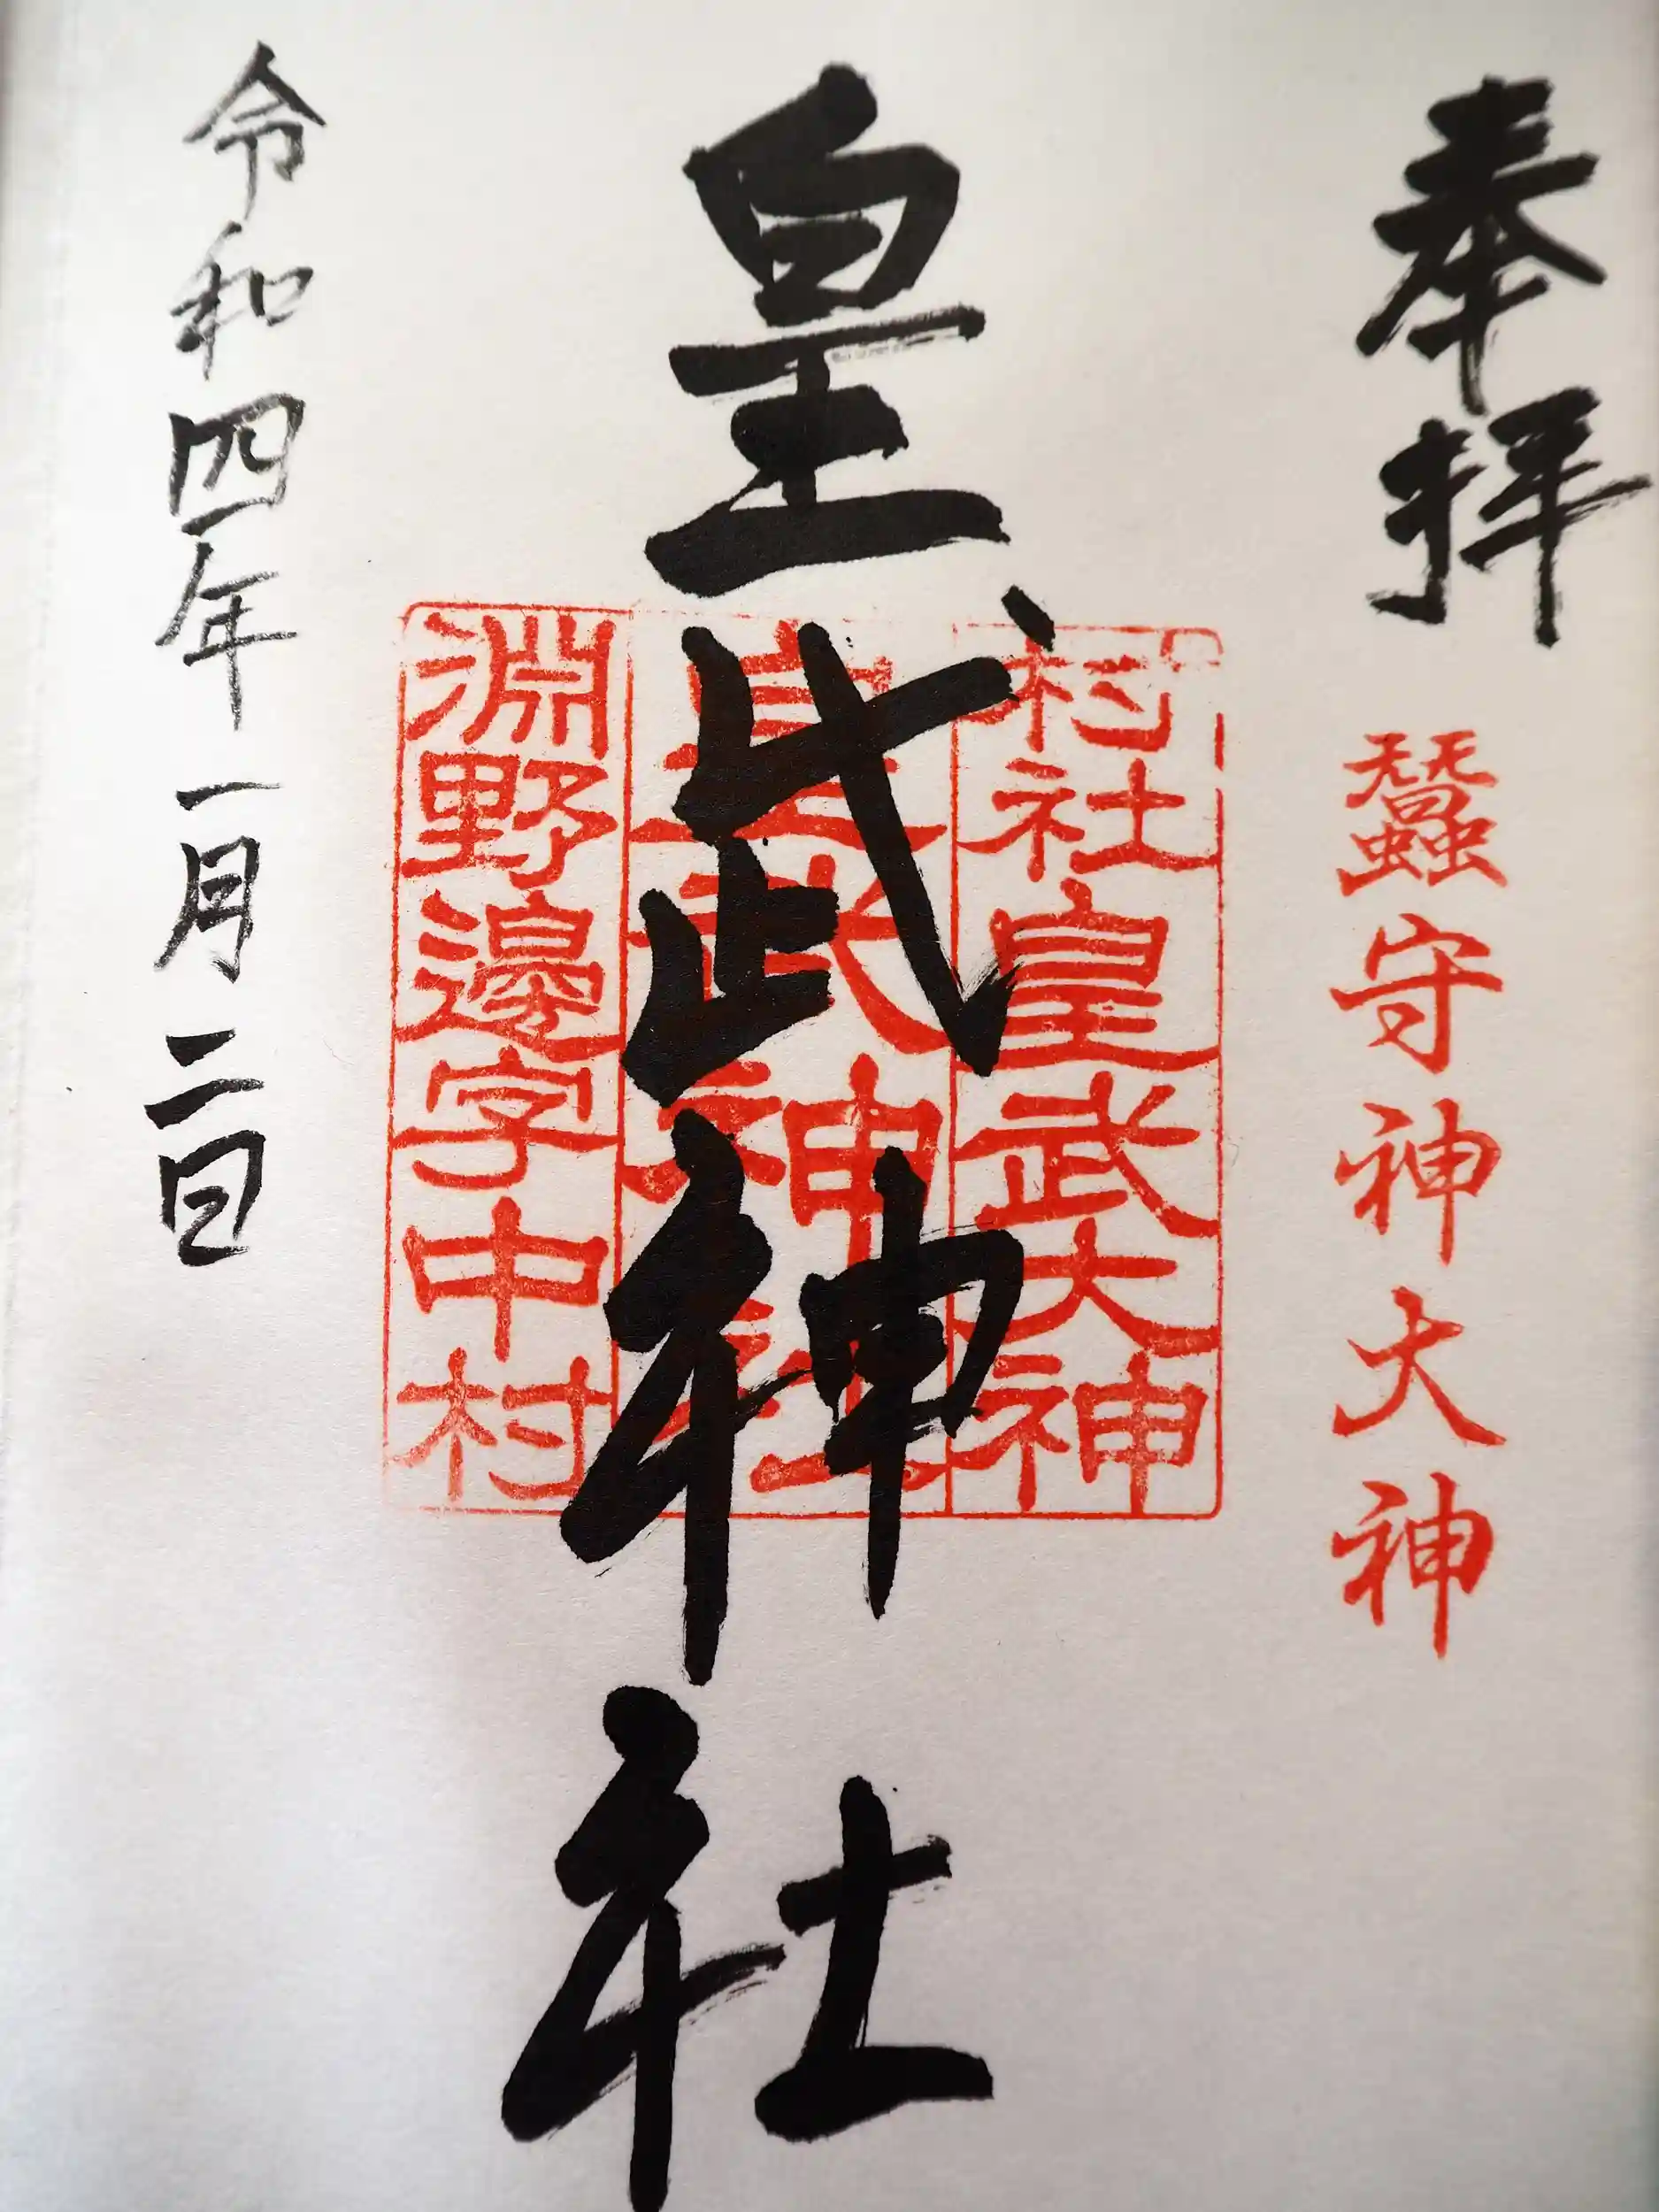 奉拝
蠶守神大神
皇武神社
村社皇武大神
皇武神社
淵野邊字中村
令和四年一月二日